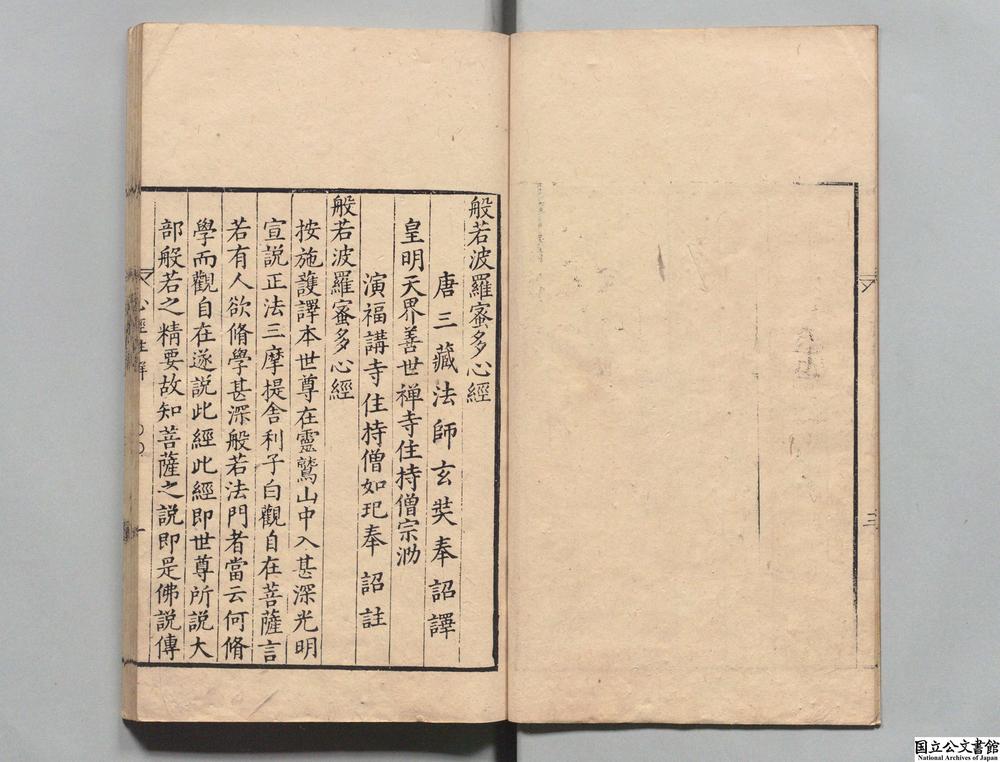 般若波羅蜜多心經
唐三藏法師玄奘奉詔譯
皇明天界善世禅寺住持僧宗泐
演福講寺住持僧如玘奉詔註
般若波羅蜜多心經
按施護譯本世尊在靈鷲山中入甚深光明
宣説正法三摩提舎利子白觀自在菩薩言
若有人欲脩學甚深般若法門者當云何脩
學而觀自在遂説此經此經即世尊所説大
部般若之精要故知菩薩之説即是佛説傳
心經註解
一
三
国立公文書館
National Archives of Japan